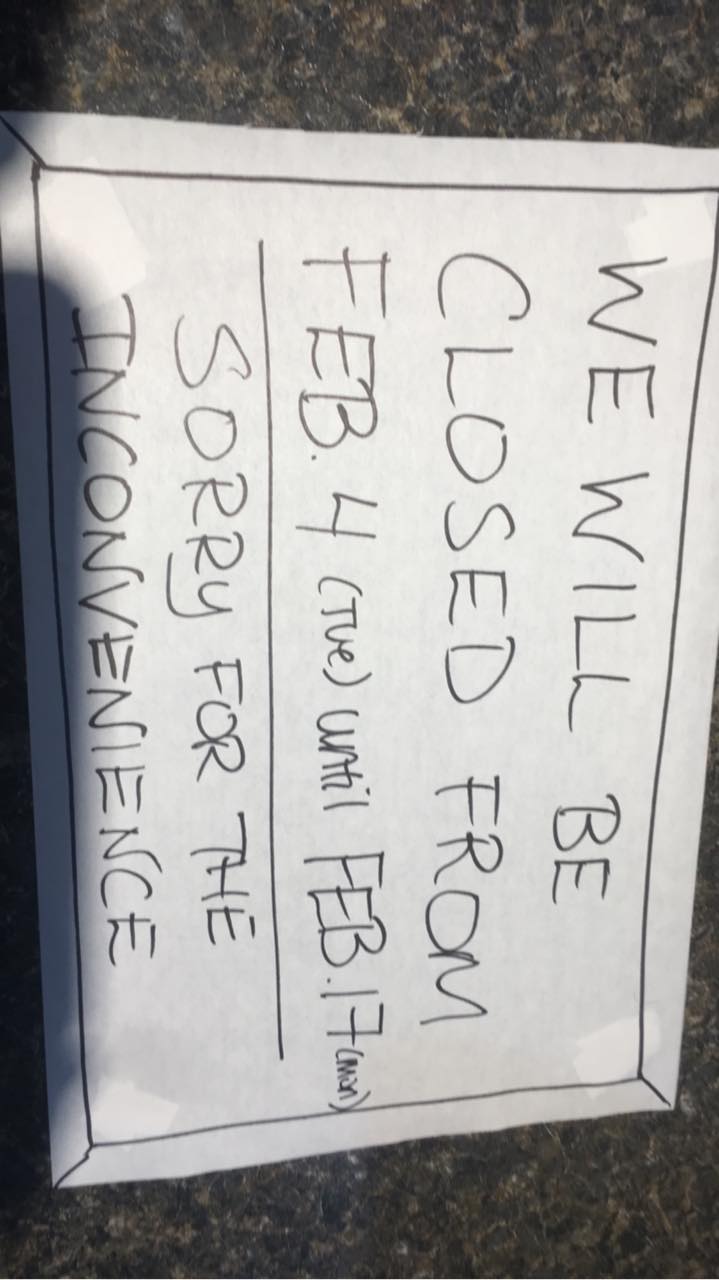 WE WILL BE
CLOSED FROM
FEB. 4 (Tue) until FEB. 17 (mon)
SORRY FOR THE
INCONVENIENCE